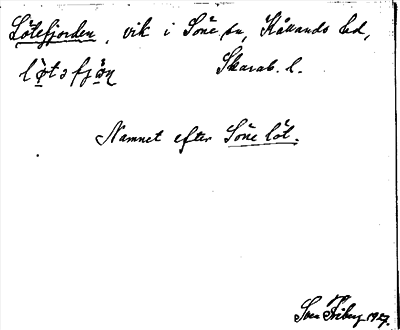 Lötefjorden, vik i Söne sn, Kållands hd,
Skarab. l.
Namnet efter Söne löt.
Sven Friberg 1927.